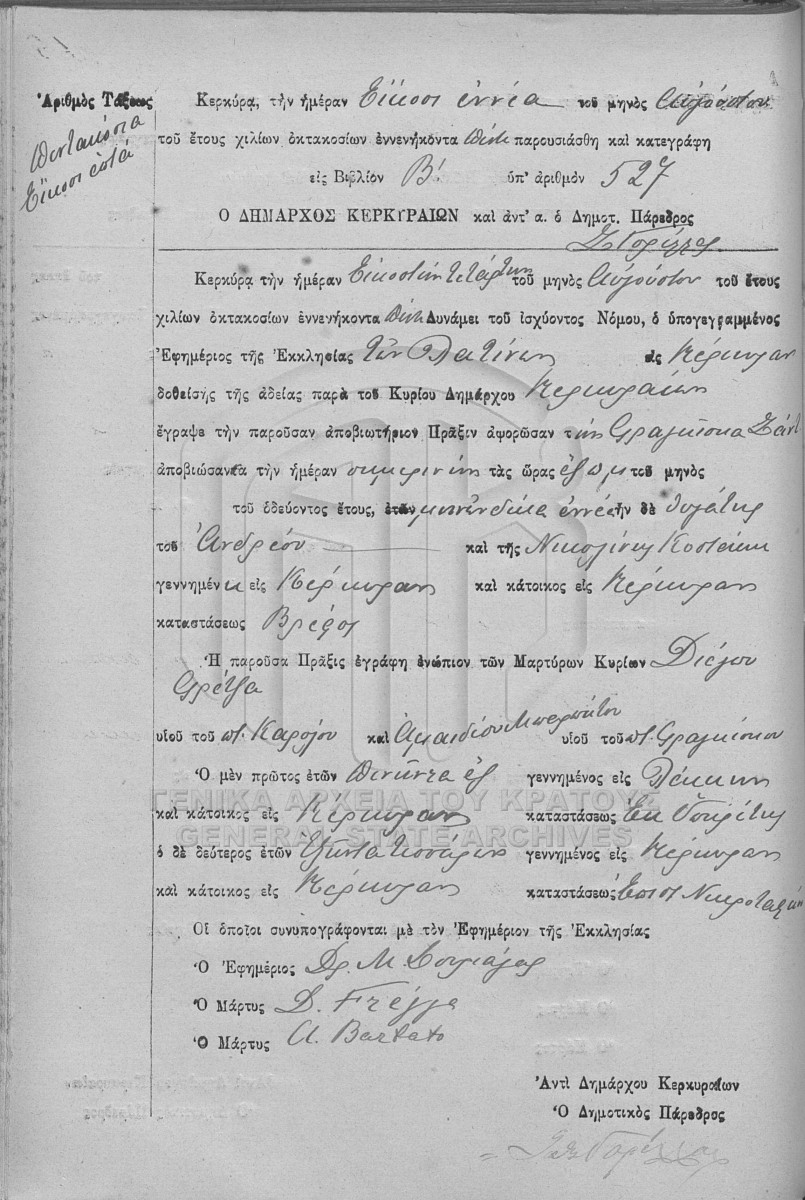 Ἀριθμὸς Τάξεως
Πεντακόσια
Εἴκοσι ἑπτά
Κερκύρᾳ, τὴν ἡμέραν Εἴκοσι ἐννέα τοῦ μηνὸς Αὐγούστου
τοῦ ἔτους χιλίων ὀκτακοσίων ἐννενήκοντα πέντε παρουσιάσθη καὶ κατεγράφη
εἰς Βιβλίον Β! ὑπ' ἀριθμὸν 527
Ο ΔΗΜΑΡΧΟΣ ΚΕΡΚΥΡΑΙΩΝ καὶ ἀντ' α. ὁ Δημοτ. Πάρεδρος
Κερκύρᾳ τὴν ἡμέραν Εἰκοστὴν τετάρτην τοῦ μηνὸς Αὐγούστου τοῦ ἔτους
χιλίων ὀκτακοσίων ἐννενήκοντα πέντε Δυνάμει τοῦ ἰσχύοντος Νόμου, ὁ ὑπογεγραμμένος
Ἐφημέριος τῆς Ἐκκλησίας τῶν Λατίνων εἰς Κέρκυραν
δοθείσης τῆς ἀδείας παρὰ τοῦ Κυρίου Δημάρχου Κερκυραίων
ἔγραψε τὴν παροῦσαν ἀποβιωτήριον Πρᾶξιν ἀφορῶσαν τὴν Φραγκῖσκα
ἀποβιώσαντα τὴν ἡμέραν σημερινὴν τὰς ὥρας ἓξ π μ τοῦ μηνὸς
τοῦ ὁδεύοντος ἔτους, ἐτῶν μηνῶν δέκα ἐννέα ἦν δὲ θυγάτηρ
τοῦ Ἀνδρέου καὶ τῆς Νικολίνης
γεννημένη εἰς Κέρκυραν καὶ κάτοικος εἰς Κέρκυραν
καταστάσεως Βρέφος
Ἡ παροῦσα Πρᾶξις ἐγράφη ἐνώπιον τῶν Μαρτύρων Κυρίων Διέγου
Φρέτζα
υἱοῦ τοῦ ποτ. Καρόλου καὶ Ἀμαιδίου Μπερτάτου υἱοῦ τοῦ ποτ. Φραγκίσκου
Ὁ μὲν πρῶτος ἐτῶν πενῆντα ἓξ γεννημένος εἰς Λέκκην
καὶ κάτοικος εἰς Κέρκυραν καταστάσεως Ἐκ Ὑπηρέτης
ὁ δὲ δεύτερος ἐτῶν ἑξῆντα τεσσάρων γεννημένος εἰς Κέρκυραν
καὶ κάτοικος εἰς Κέρκυραν καταστάσεως
Οἱ ὁποῖοι συνυπογράφονται μὲ τὸν Ἐφημέριον τῆς Ἐκκλησίας
Ὁ Ἐφημέριος
Ὁ Μάρτυς D.
Ὁ Μάρτυς A. Bartato
Ἀντὶ Δημάρχου Κερκυραίων
Ὁ Δημοτικὸς Πάρεδρος
ΓΕΝΙΚΑ ΑΡΧΕΙΑ ΤΟΥ ΚΡΑΤΟΥΣ
GENERAL STATE ARCHIVES